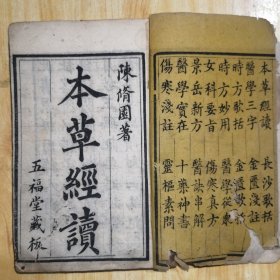 本草經讀 長沙歌括
醫學三字 金匱淺註
時方歌括 金匱歌括
時方妙用 醫學從衆
女科要旨 傷寒真方
景岳新方 醫訣串解
醫學實在 十藥神書
傷寒淺註 靈樞素問
陳脩園著
本草經讀
五福堂藏板